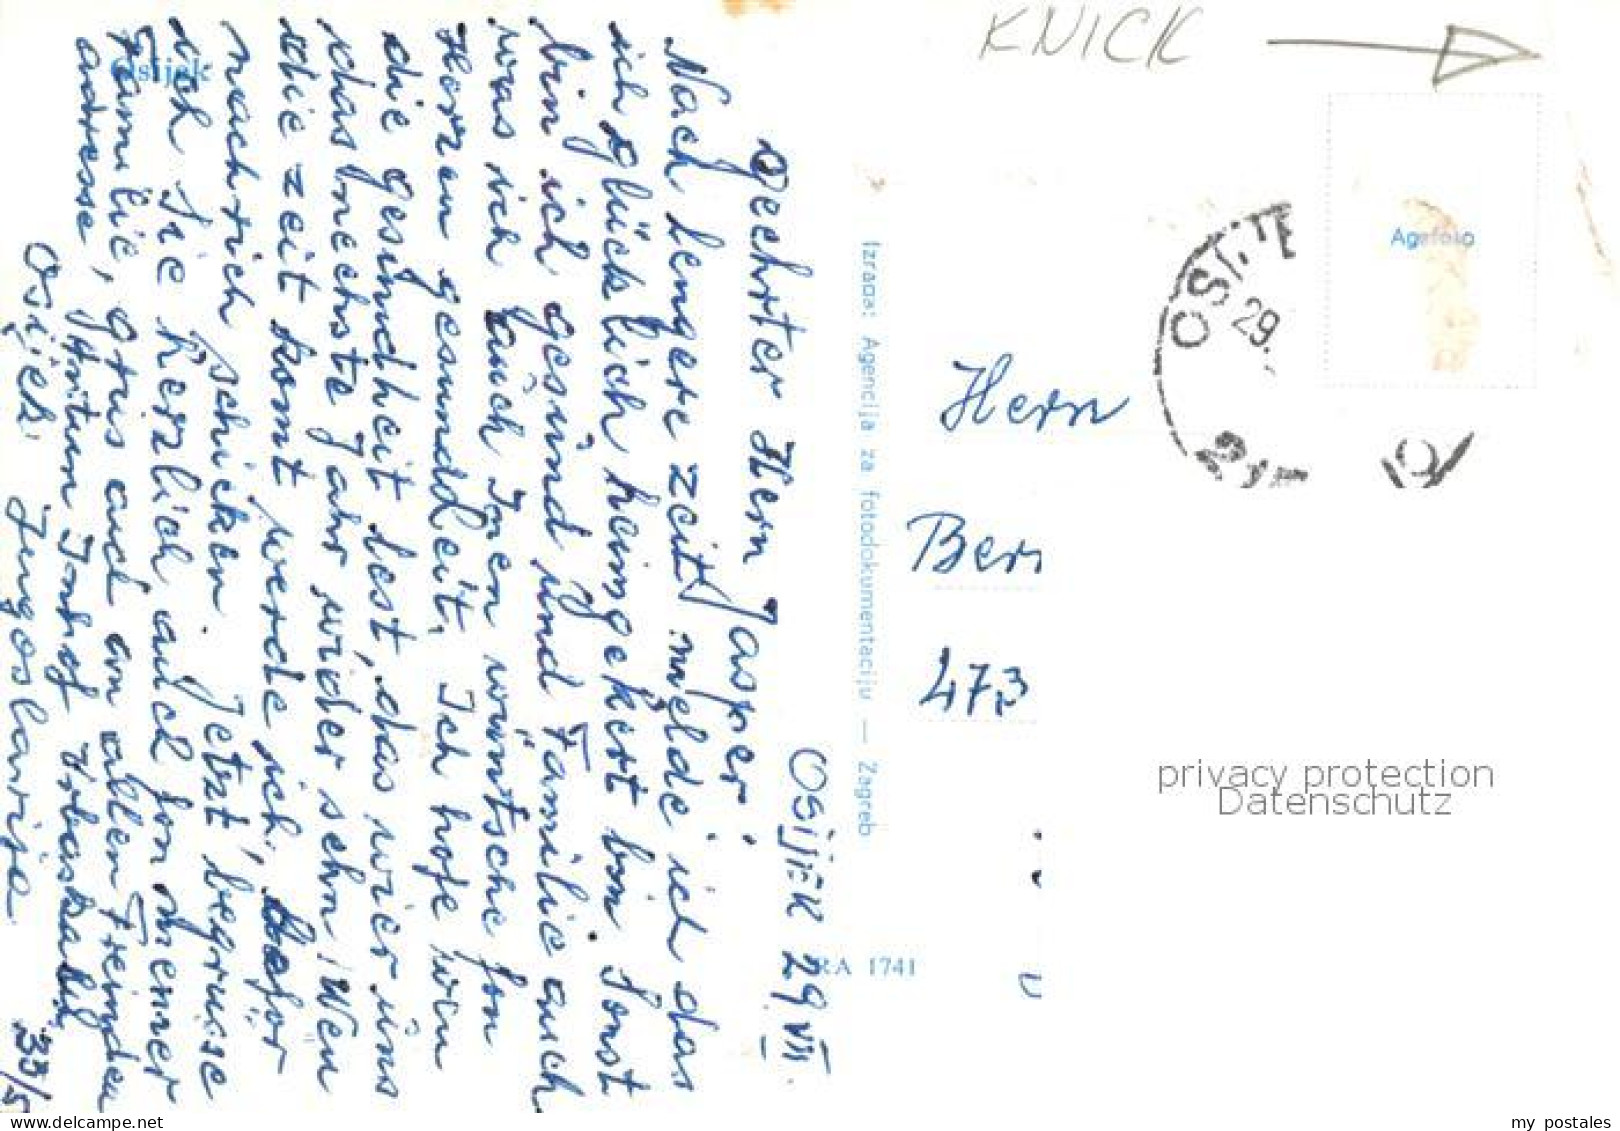 KNICK
Osijek
Osijek 29 VII.
Geehrter Hern Jasper!
Nach lengere zeit melde ich das
ich glücklich heimgekert bin. Sonst
bin ich gesund und Familie auch
was ich auch Inen wüntsche fon
Herzen gesunddeit. Ich hofe wen
die gesundheit lest, das wier uns
das nechste Jahr wider sehn. Wen
die zeit komt werde ich,
nach rich schicken. Jetzt begrüse
ich Sie herzlich auch fon meiner
Familie, grüs auch an allen Freinden
adresse, Antun Imhof
Osijek. Jugoslavija
33/5
Izrada: Agencija za fotodokumentaciju — Zagreb
RA 1741
Agefoto
29.
Hern
Ber
473
privacy protection
Datenschutz
my postales
www.delcampe.net